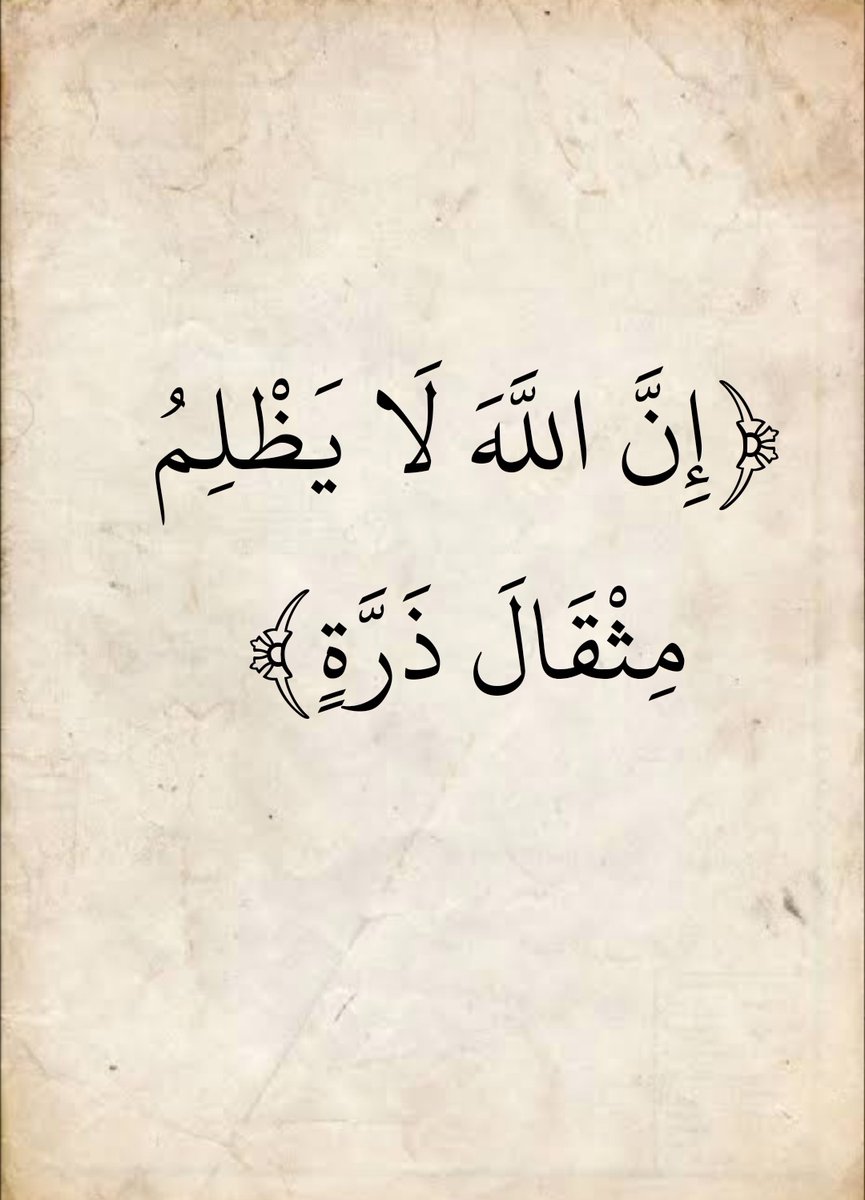 ﴿إِنَّ اللَّهَ لَا يَظْلِمُ
مِثْقَالَ ذَرَّةٍ﴾